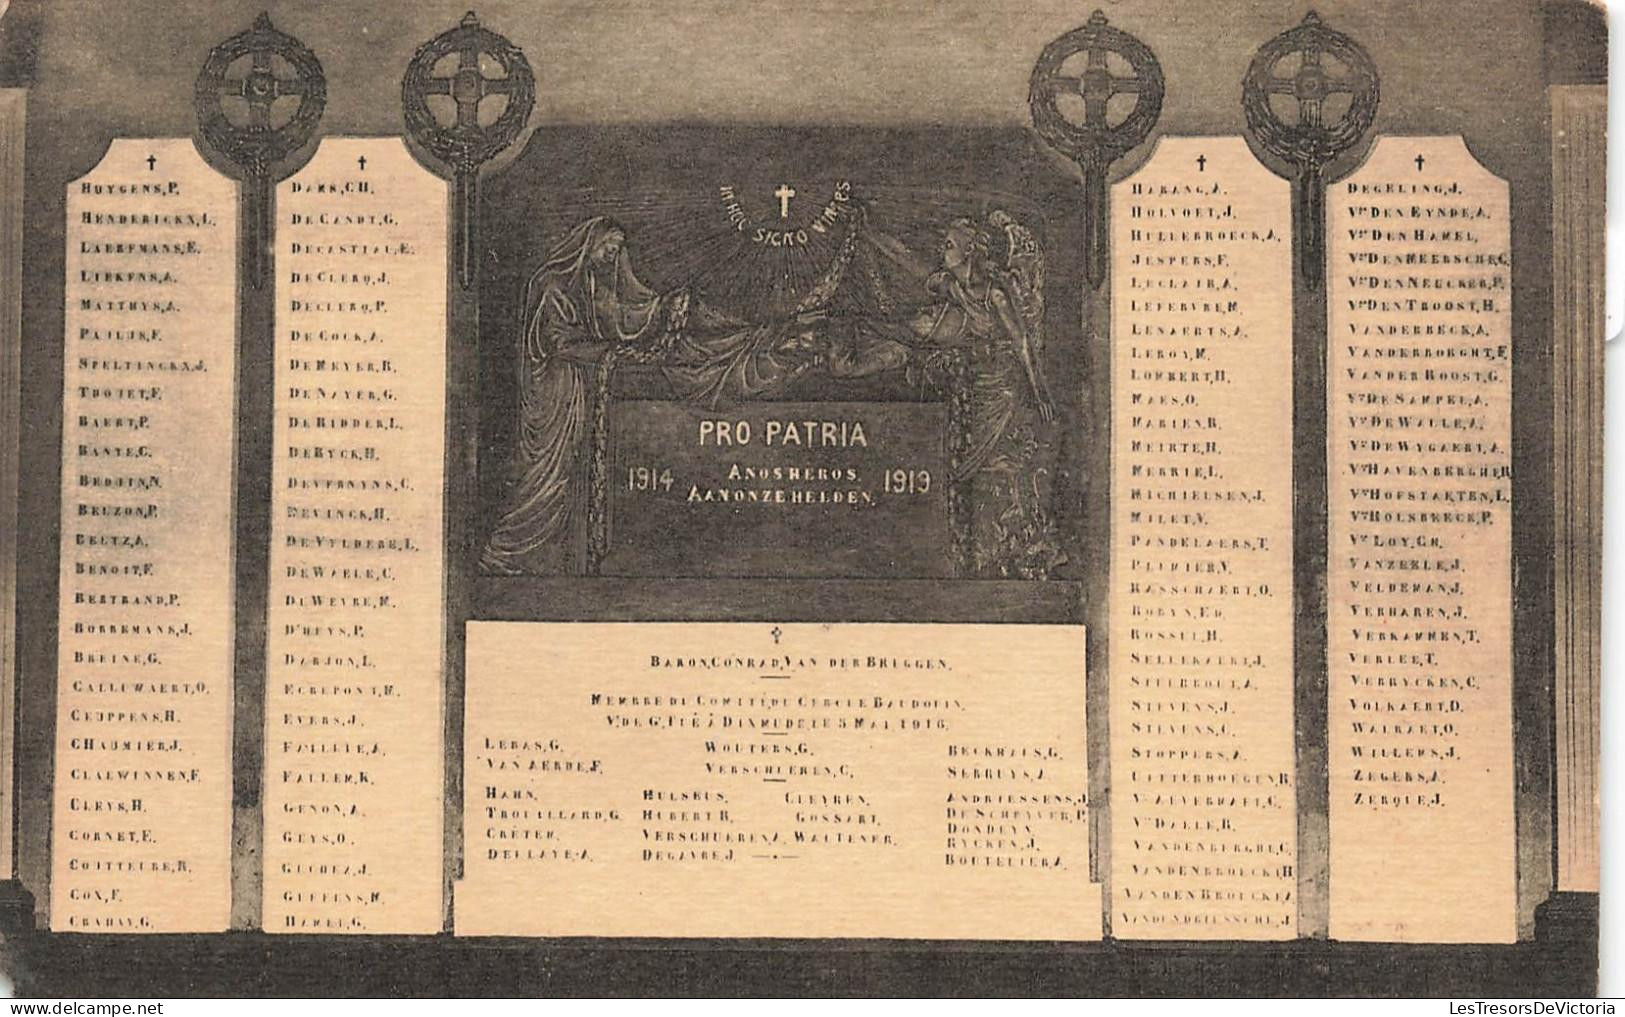 HUYGENS,P.
HENDERICKX,L.
LAERFMANS,E.
LIEKENS,A.
MATTHYS,A.
PAILUS,F.
SPELTINCKX,J.
TROJET,F.
BAERT,P.
BANTE,C.
BEDUIN,N.
BEUZON,P.
BELTZ,A.
BENOIT,F.
BERTRAND,P.
BORREMANS,J.
BREINE,G.
CALLEWAERT,O.
CEUPPENS,H.
CHAUMIER,J.
CLAEWINNEN,F.
CLEYS,H.
CORNET,E.
COUTTEURE,R.
COX,F.
CRAHAY,G.
DAMS,CH.
DE CANDT,G.
DECASTIAU,E.
DE CLERQ,J.
DECLERQ,P.
DE COCK,A.
DE MEYER,R.
DE NAYER,G.
DE RIDDER,L.
DE RYCK,H.
DEVERNYNS,C.
DEVINCK,H.
DE VYLDERE,L.
DE WAELE,C.
DE WEVRE,M.
D'HEYS,P.
DARJON,L.
ECREPONT,M.
EVERS,J.
FALLEIE,A.
FALLER,K.
GENON,A.
GEYS,O.
GUDHEZ,J.
GEFFENS,M.
HAMEL,G.
IN HOC SIGNO VINCES
PRO PATRIA
1914 A NOS HEROS 1919
AAN ONZE HELDEN.
BARON,CONRAD,VAN DER BRUGGEN.
MEMBRE DU COMITÉ,DU CERCLE BAUDOUIN.
V.DE G.TUÉ À DIXMUDE LE 5 MAI 1916.
LEBAS,G. WOUTERS,G. BECKHAUS,G.
VAN AERDE,F. VERSCHUEREN,C. SERRUYS,A.
HAHN. HULSEUS. CLEYREN. ANDRIESSENS,J.
TROUILLARD,G. HUBERT R. GOSSART. DE SCHRYVER,P.
CRÉTEN. VERSCHUEREN,A. WAUTENER. DONDEYN.
RYCKEN,J.
DELLAYE-A. DEGAVRE,J. BOUTELIER,A.
HARANG,A.
HOLVOET,J.
HULLEBROECK,A.
JESPERS,F.
LECLAIR,A.
LEFEBVRE,M.
LENAERTS,A.
LEROY,M.
LOMBERT,H.
MAES,O.
MARIEN,R.
MEIRTE,H.
MERRIE,L.
MICHIELSEN,J.
MILET,V.
PANDELAERS,T.
PLUMIER,V.
RASSCHAERT,O.
ROBYN,ED.
ROSSEL,H.
SELLEKAERT,J.
STEERBOUT,A.
STEVENS,J.
STEVENS,C.
STOPPERS,A.
UITTERHOEGEN,R.
VN ALVERMAET,C.
VN DAELE,R.
VANDENBERGHE,C.
VANDENBROECK,H
VANDEN BROECKE,A
VANDENDRIESSCHE,J
DEGELING,J.
VN DEN EYNDE,A.
VN DEN HAMEL.
VN DEN MEERSCHE,G.
VN DEN NEUCKER,P.
VN DEN TROOST,H.
VANDERBECK,A.
VANDERBORGHT,F.
VANDER ROOST,G.
VN DE SAMPEL,A.
VN DE WALLE,A.
VN DE WYGAERT,A.
VN HAVENBERGHE,R
VN HOFSTAETEN,L.
VN HOLSBEECK,P.
VN LOY,CH.
VANZEELE,J.
VELDEMAN,J.
VERHAREN,J.
VERKAMMEN,T.
VERLEE,T.
VERRYCKEN,C.
VOLKAERT,D.
WALRAET,O.
WILLEMS,J.
ZEGERS,A.
ZERQUE,J.
LesTresorsDeVictoria